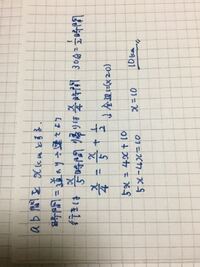 ab間を xkmとする。
時間=道のり÷速さより
行きは x/5時間 帰りは x/4時間 30分=1/2時間
x/4 = x/5 + 1/2 ↓全辺に(×20)
5x=4x+10
5x-4x=10
x=10 10km